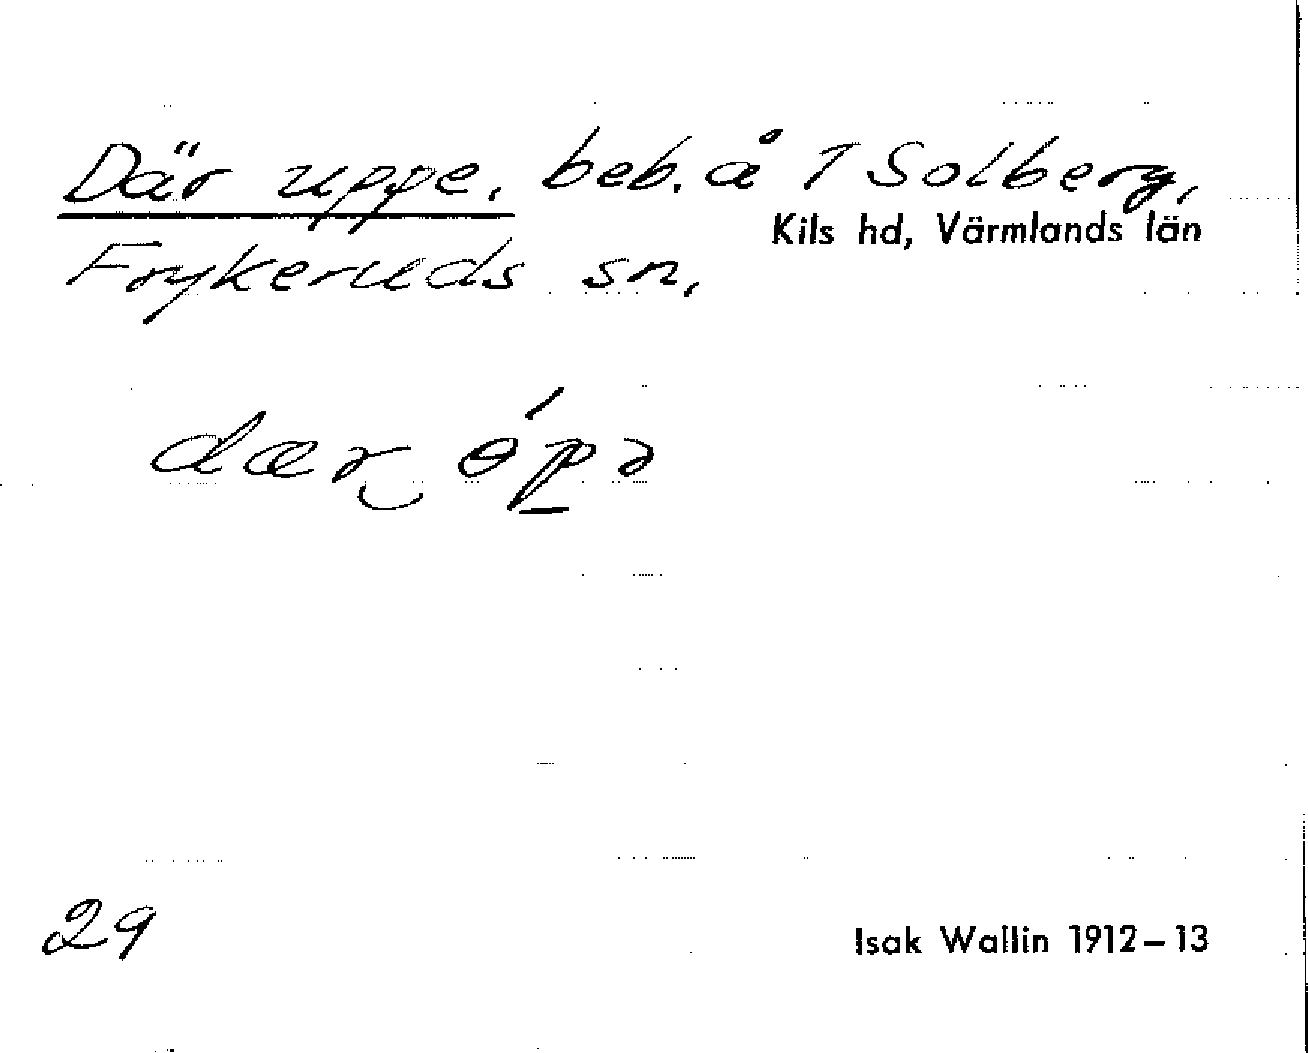 Där uppe, beb. å 1 Solberg,
Kils hd, Värmlands län
Frykeruds sn,
dær ɵ́pə
29
Isak Wallin 1912–13